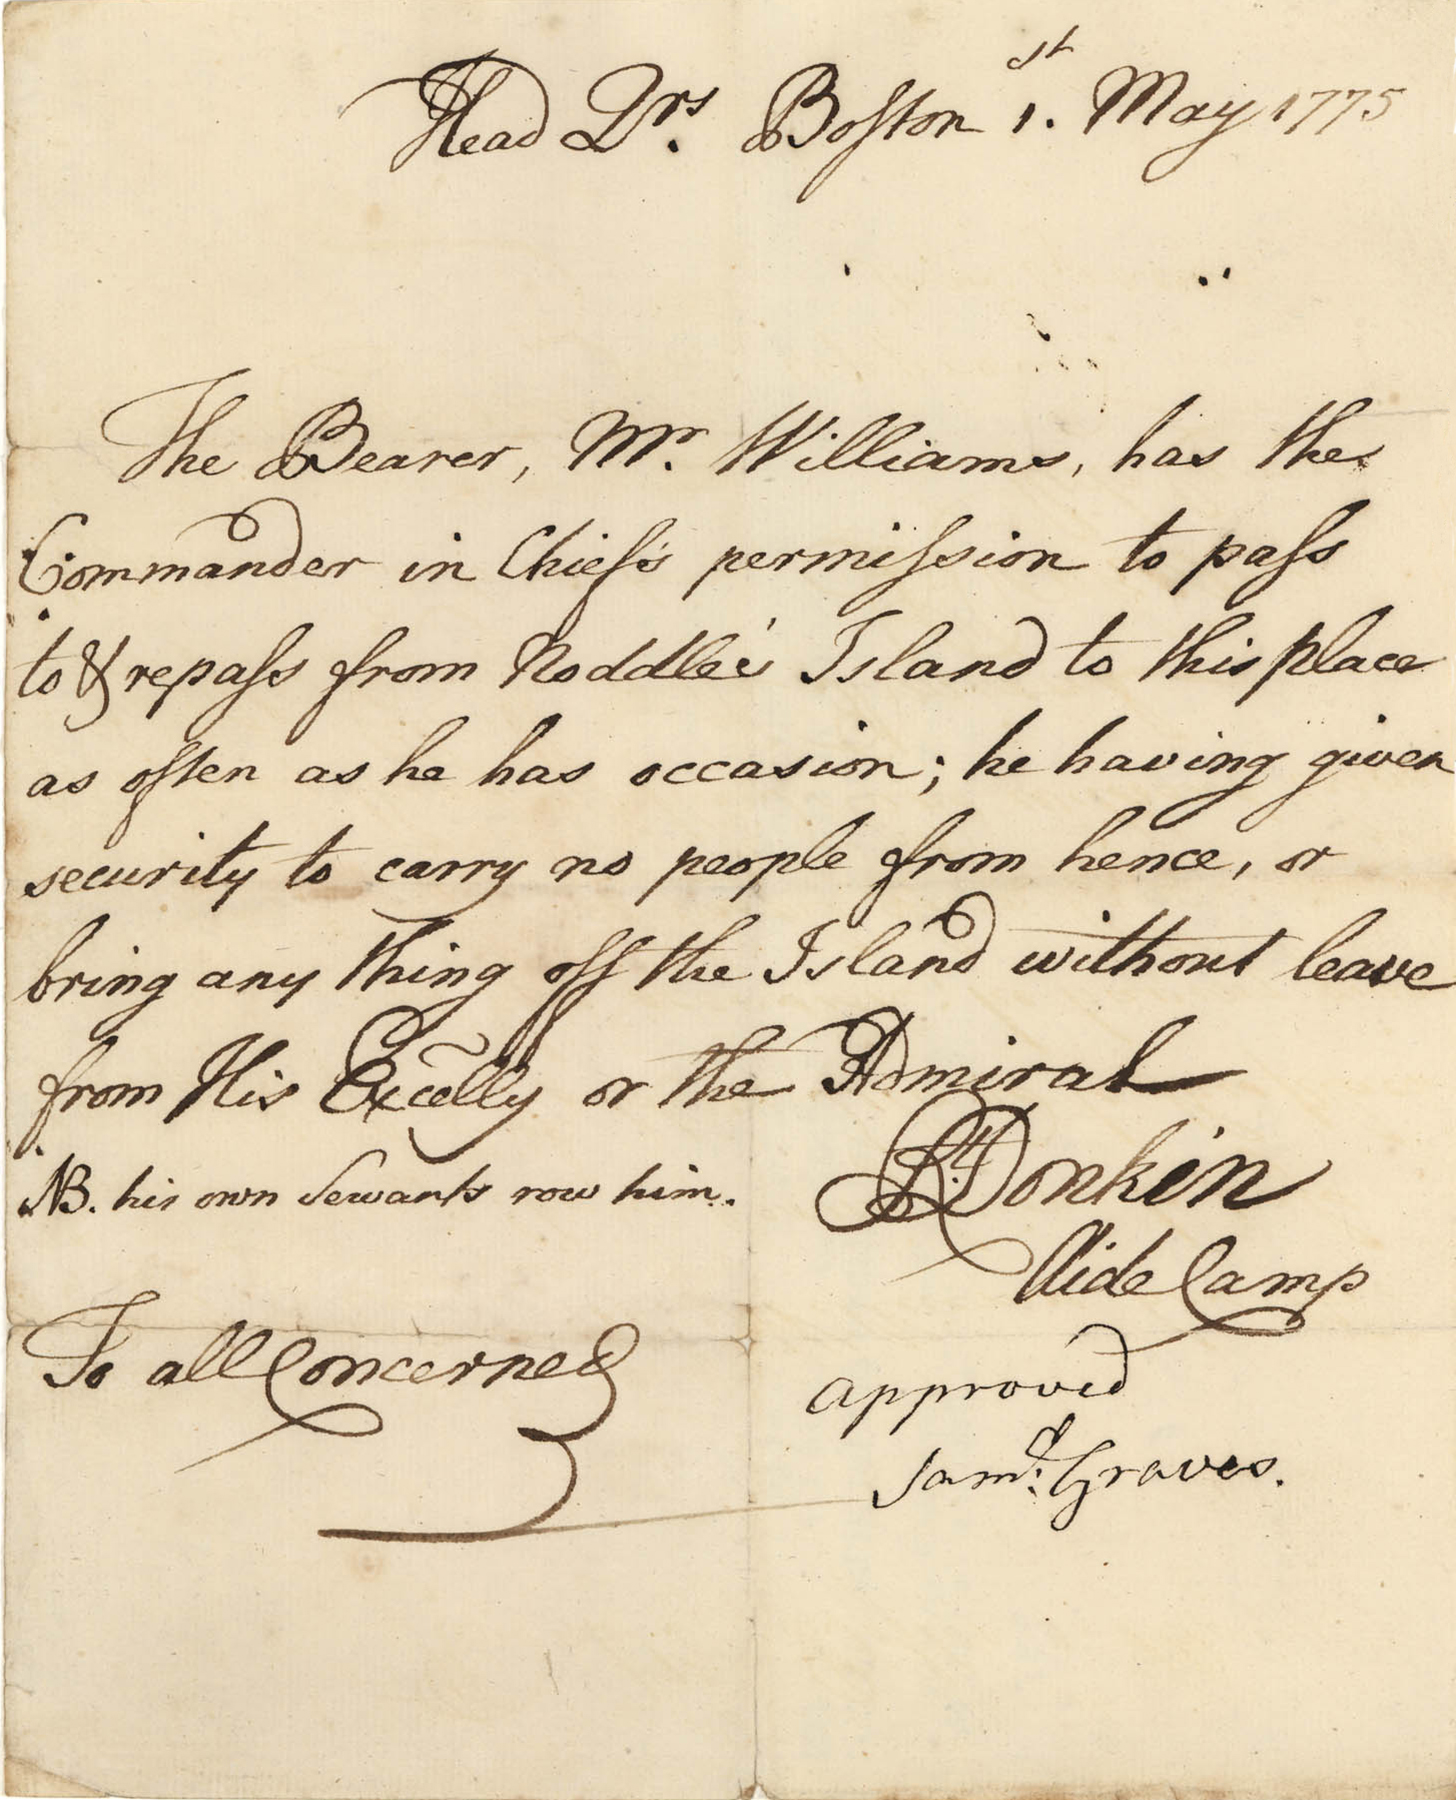 Head Qrs. Boston 1st. May 1775
The Bearer, Mr. Williams, has the
Commander in Chief's permission to pass
to & repass from Noddle's Island to this place
as often as he has occasion; he having given
security to carry no people from hence, or
bring any thing off the Island without leave
from His Excelly or the Admiral
Rt. Donkin
NB. his own Servants row him.
Aide Camp
To all Concerned
approved
Saml. Graves.